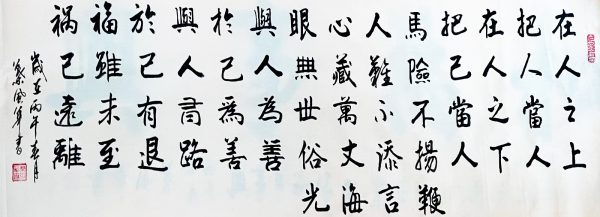 在人之上
把人當人
在人之下
把己當人
馬險不揚鞭
人難不添言
心藏萬丈海
眼無世俗光
與人為善
於己爲善
與人路
於己有退
福雖未至
禍已遠離
歲在丙午春月
書